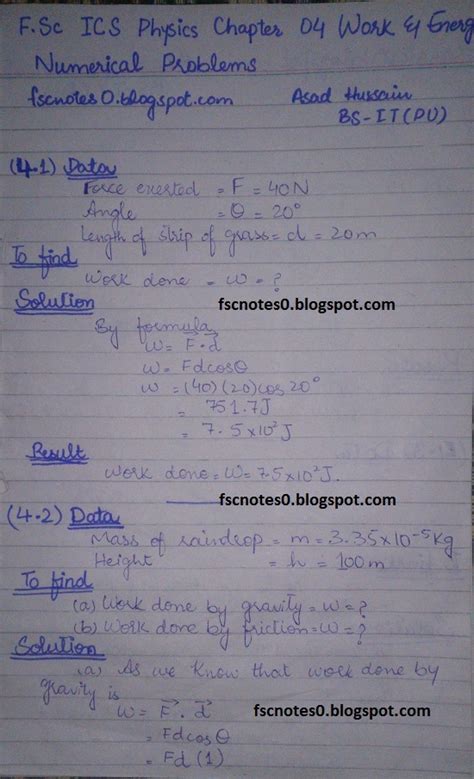 F.Sc ICS Physics Chapter 04 Work & Energ
Numerical Problems
fscnotes0.blogspot.com Asad Hussain
BS-IT(PU)
(4.1) Data
Force exerted = F = 40N
Angle = θ = 20°
Length of strip of grass = d = 20m
To find
Work done = w = ?
Solution fscnotes0.blogspot.com
By formula
w = F⃗.d⃗
w = Fdcosθ
w = (40)(20)cos 20°
= 751.7J
= 7.5×10²J
Result
Work done = W = 7.5×10²J.
fscnotes0.blogspot.com
(4.2) Data
Mass of raindrop = m = 3.35×10⁻⁵Kg
Height = h = 100m
To find
(a) Work done by gravity = w = ?
(b) Work done by friction = w = ?
Solution
(a) As we know that work done by
gravity is
w = F⃗.d⃗ fscnotes0.blogspot.com
= Fdcosθ
= Fd(1)